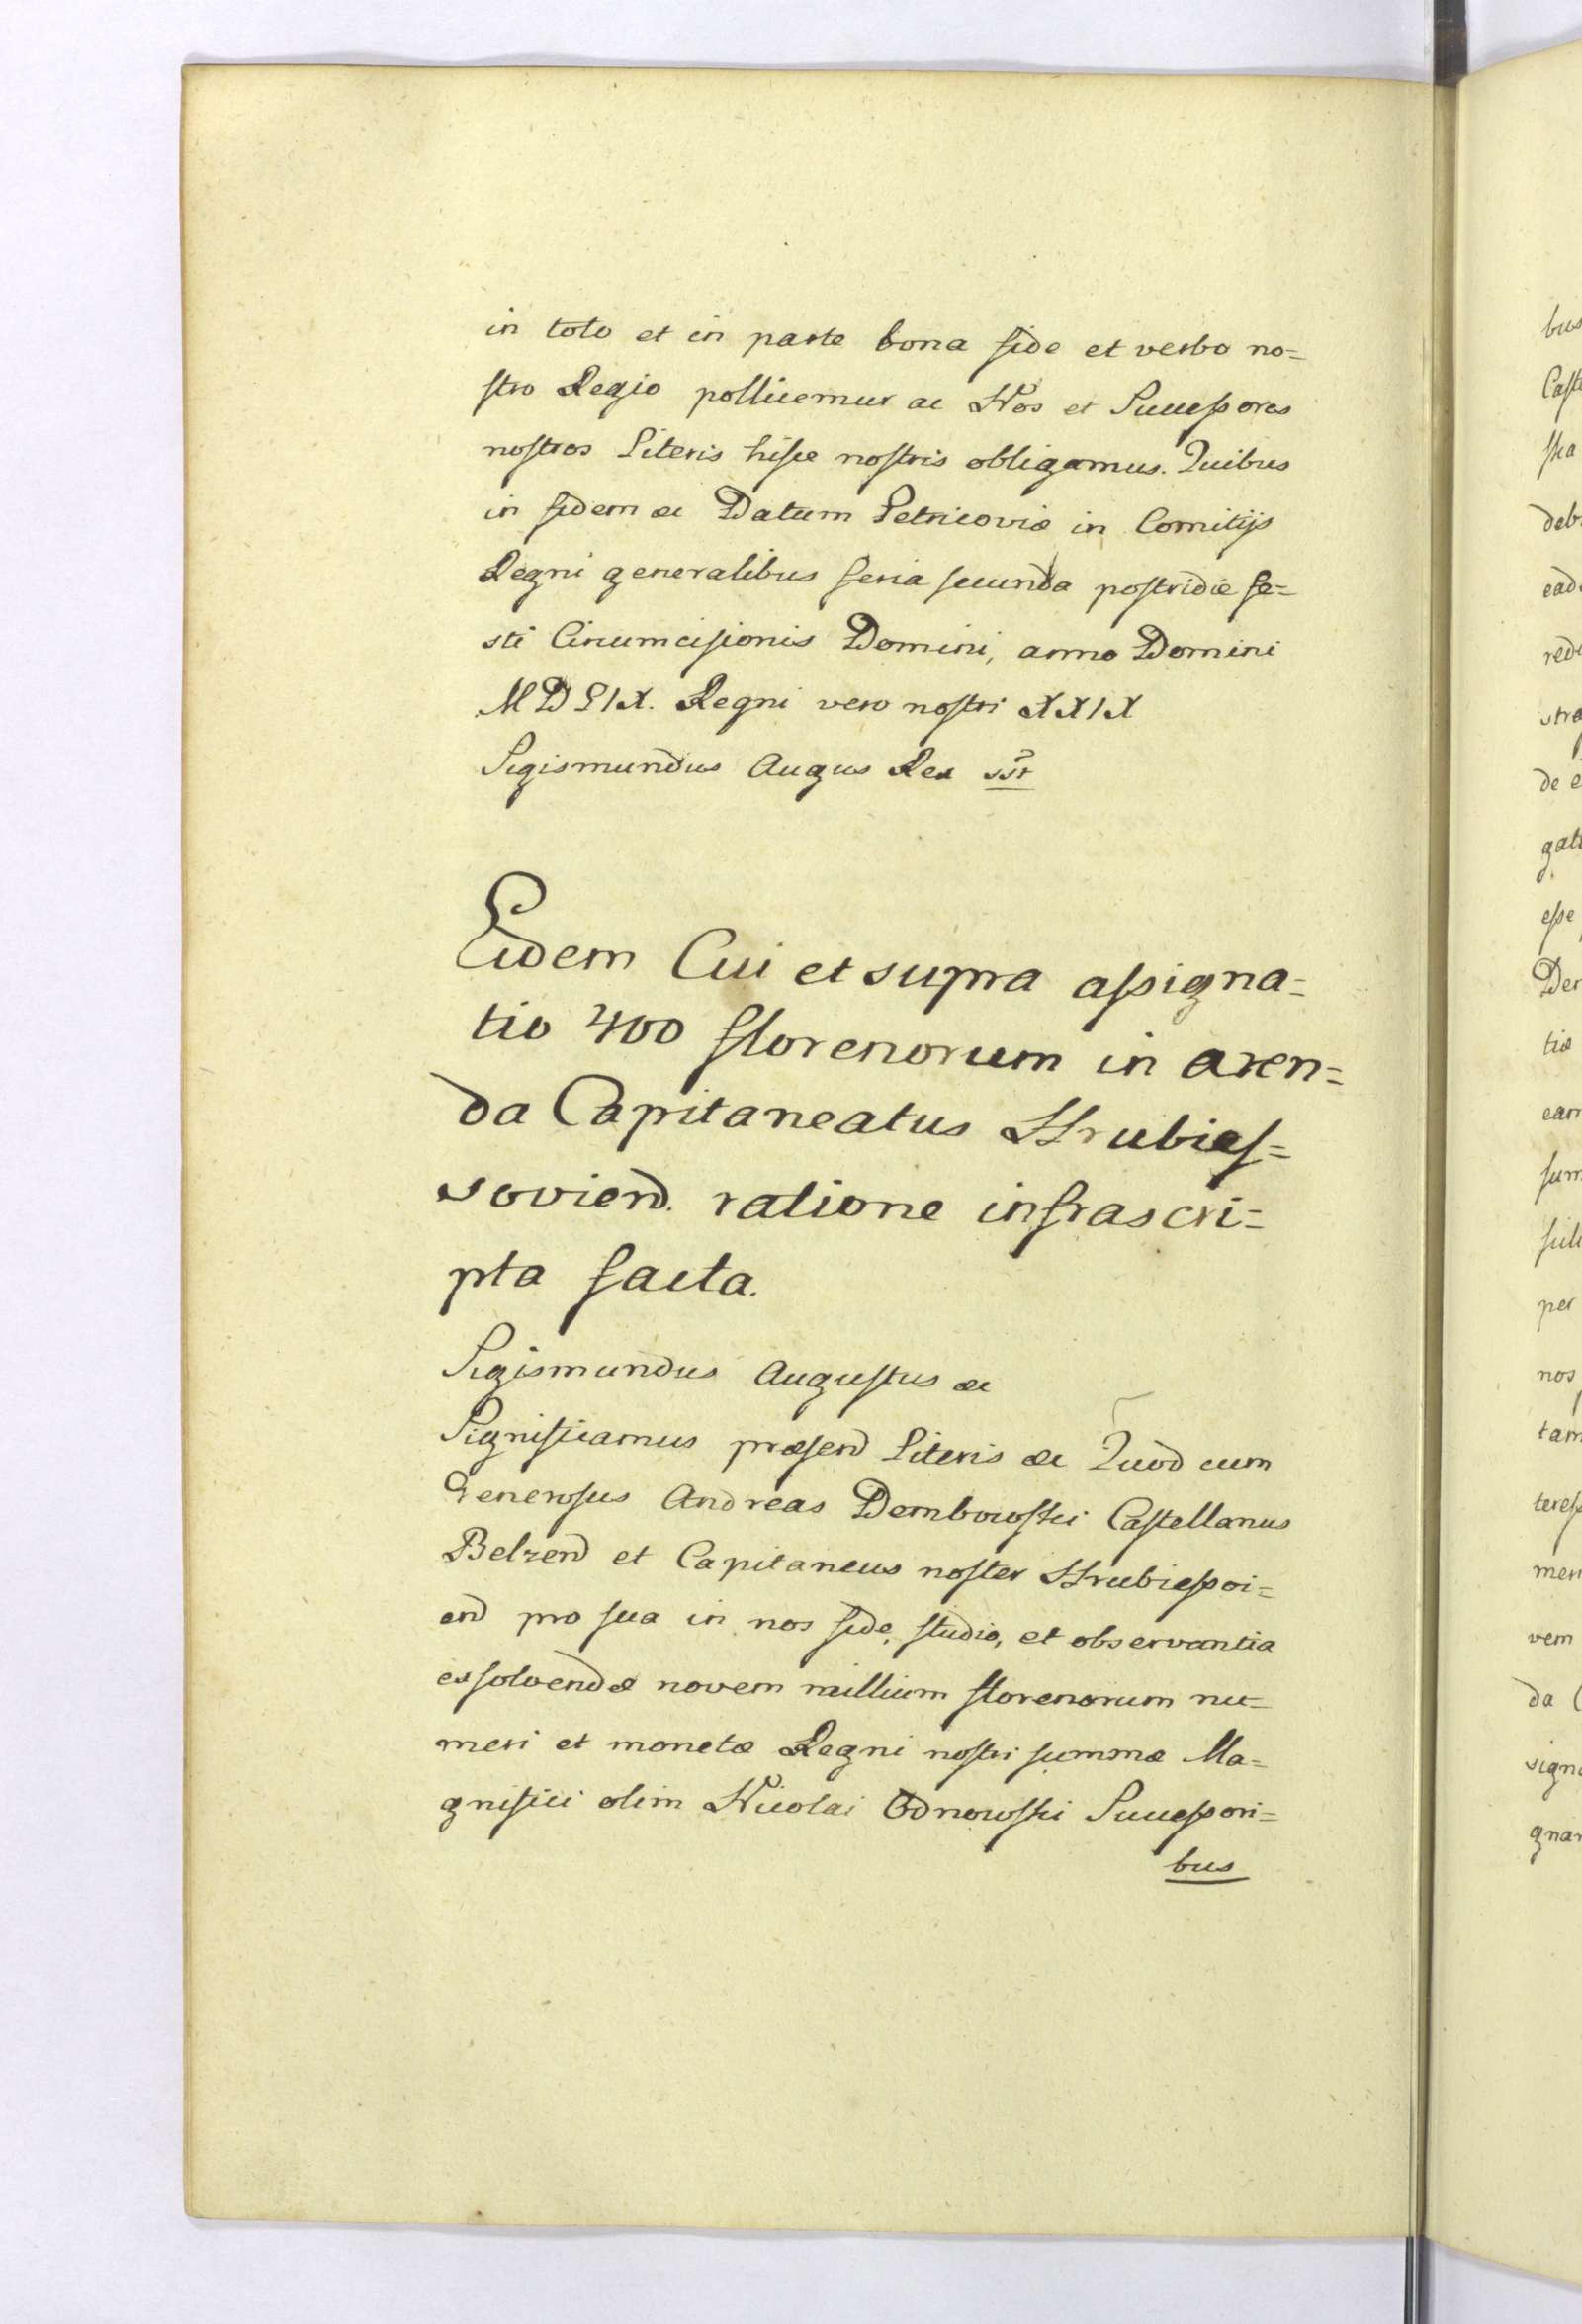 in toto et in parte bona fide et verbo no=
stro Regio pollicemur ac Nos et Successores
nostros Literis hisce nostris obligamus. Quibus
in fidem &c Datum Petricoviæ in Comitijs
Regni generalibus feria secunda postridie fe=
sti Circumcisionis Domini, anno Domini
MDLIX. Regni vero nostri XXIX
Sigismundus Augus Rex sst
Eidem Cui et supra assigna=
tio 400 florenorum in aren=
da Capitaneatus Hrubies=
soviend. ratione infrascri=
pta facta.
Sigismundus Augustus &c
Significamus præsend Literis &c Quod cum
Generosus Andreas Dembowski Castellanus
Belzend et Capitaneus noster Hrubiessoi=
end pro sua in nos fide, studio, et observantia
exsolvendæ novem millium florenorum nu=
meri et monetæ Regni nostri summæ Ma=
gnifici olim Nicolai Odnowski Successori=
bus
bus
Cast
ska
deb
ead
red
stra
de e
gat
esse
Der
tiæ
eam
sum
per
nos
tam
teress
men
vem
da
signa
gnar